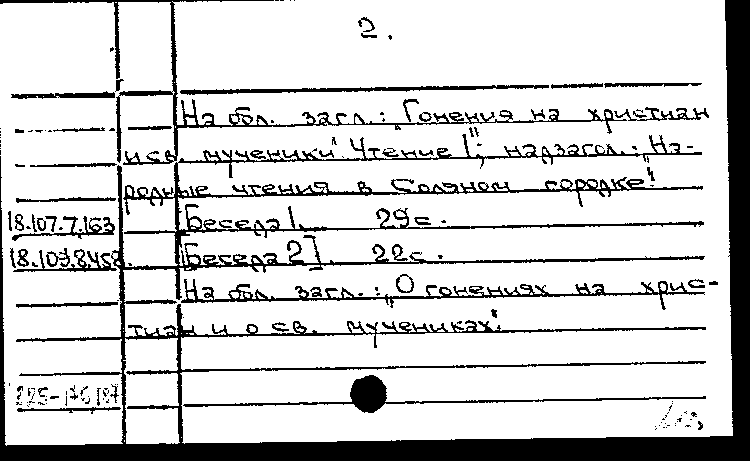 2.
На обл. загл.: „Гонения на христиан
и св. мученики". Чтение I"; надзагол.: „На-
родные чтения в Соляном городке".
18.107.7.163 [Беседа 1. 29с.
18.109.8.458. [Беседа 2]. 22с.
На обл. загл.: „О гонениях на хрис-
тиан и о св. мучениках".